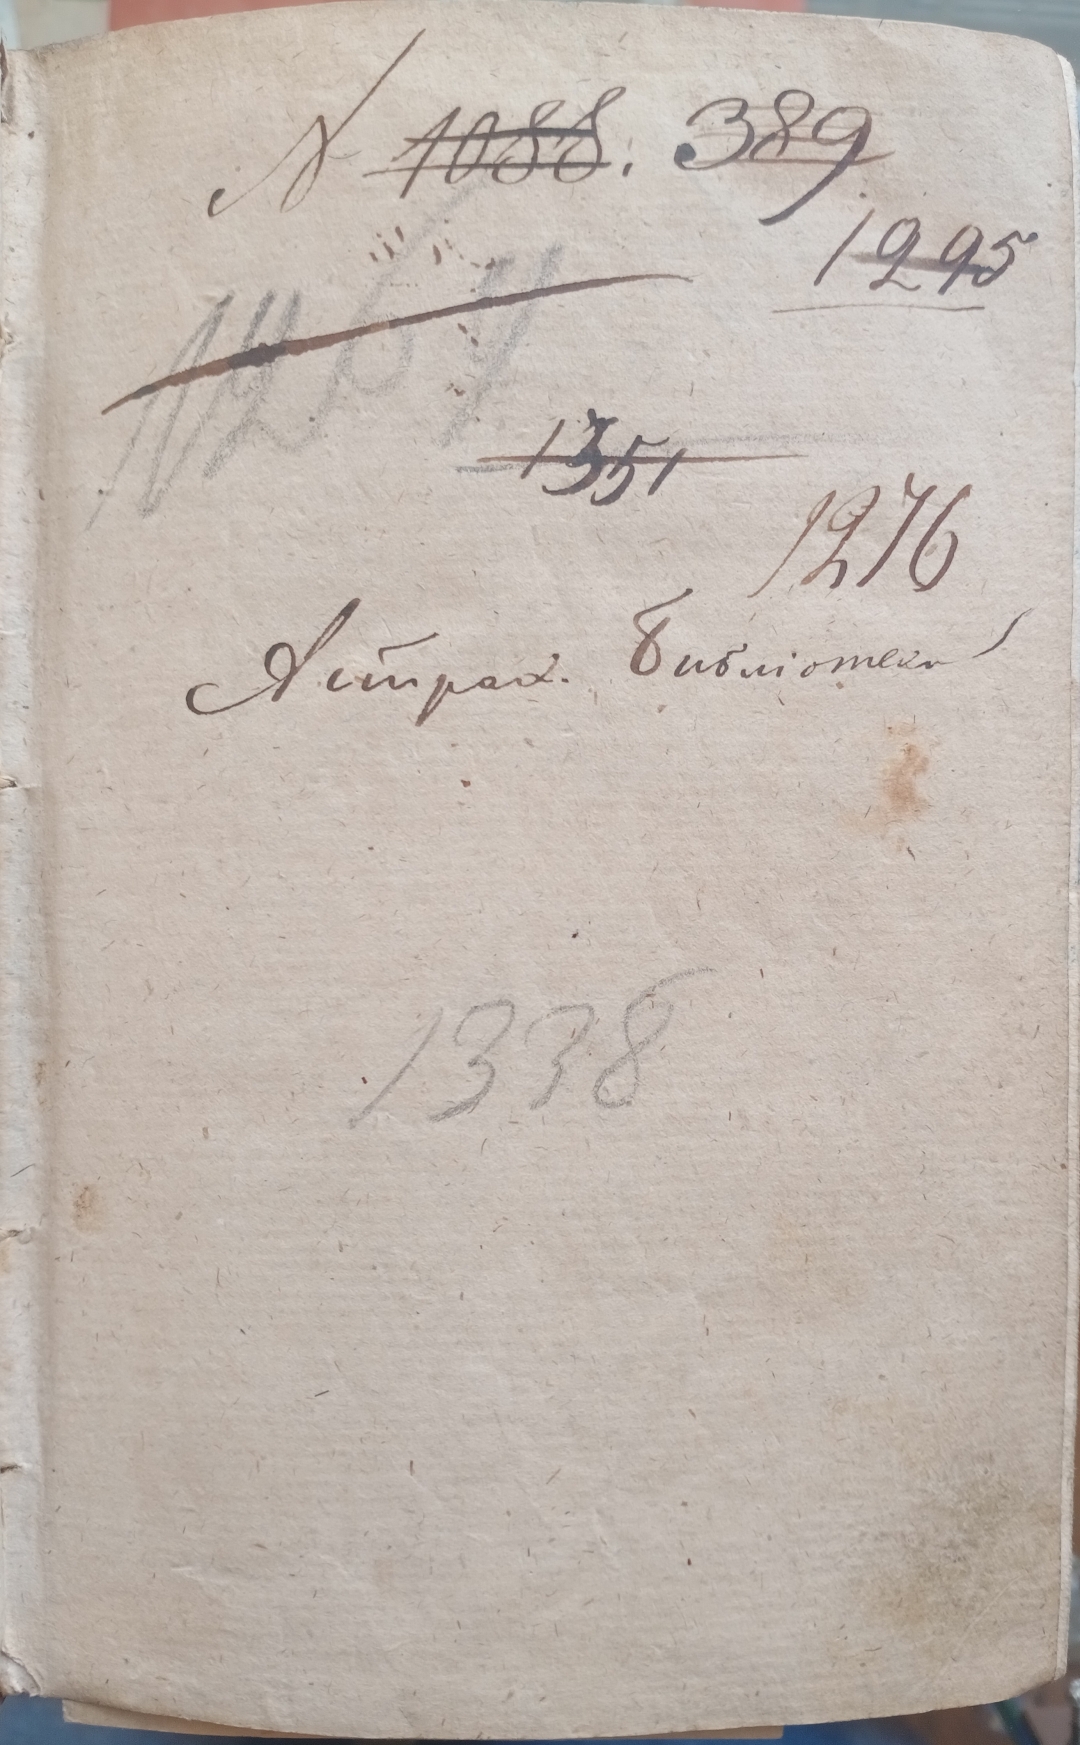 N 1088. 389
1295
1351
1276
Астрах. Библіотеки
1338